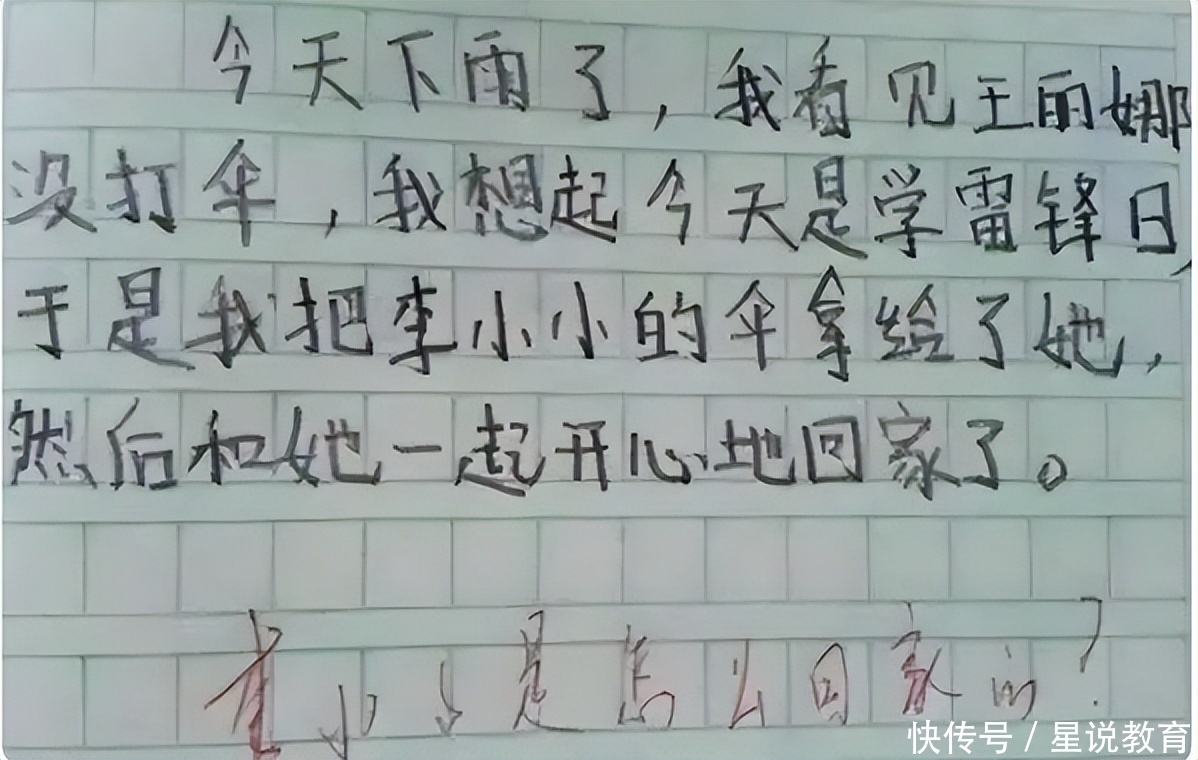 今天下雨了，我看见王丽娜
没打伞，我想起今天是学雷锋日，
于是我把李小小的伞拿给了她，
然后和她一起开心地回家了。
李小小是怎么回家的？
快传号 / 星说教育